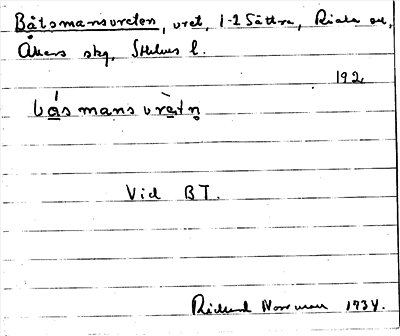 Båtsmansvreten, vret, 1-2 Sättra, Riala sn,
Åkers skg, Sthlms l.
192
bås mans vrɛtn̥
Vid BT.
Rickard Norrman 1934.